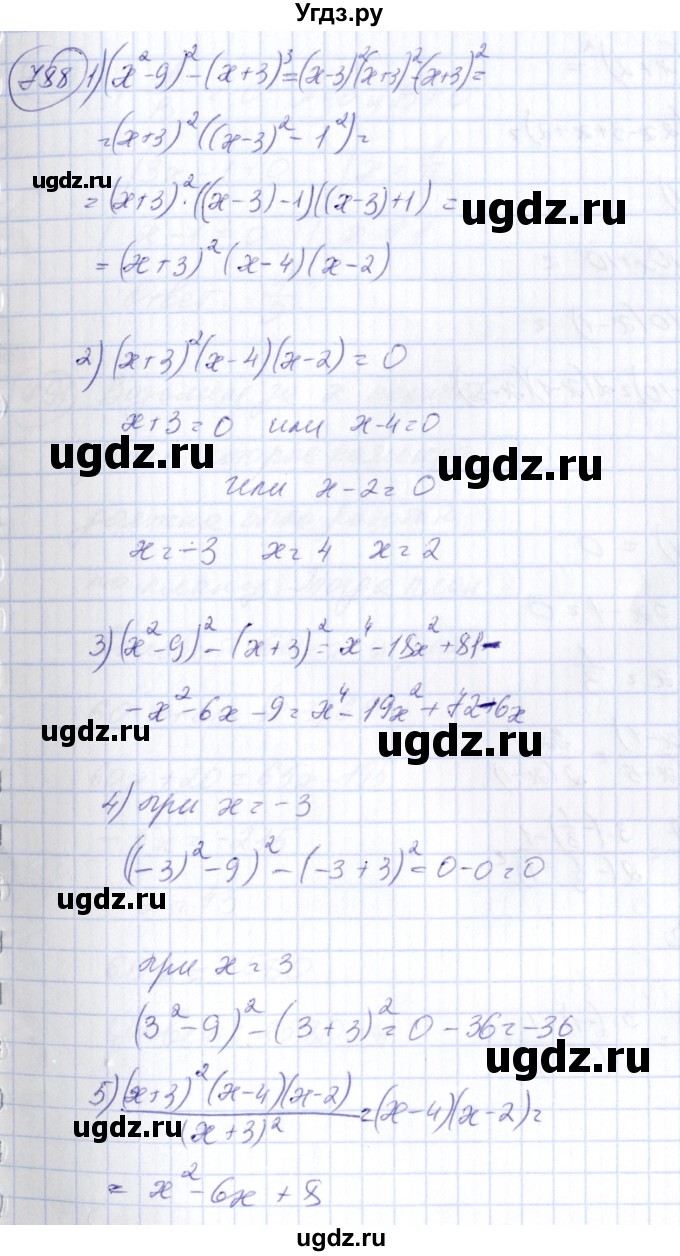 Угдз.ру
788 1) (x²-9)²-(x+3)³=(x-3)²(x+3)²-(x+3)²=
=(x+3)²((x-3)²-1²)=
ugdz.ru
=(x+3)²·((x-3)-1)((x-3)+1)=
ugdz.ru
=(x+3)²(x-4)(x-2)
2) (x+3)²(x-4)(x-2)=0
x+3=0 или x-4=0
ugdz.ru
ugdz.ru
или x-2=0
x=-3 x=4 x=2
3) (x²-9)²-(x+3)²=x⁴-18x²+81-
-x²-6x-9=x⁴-19x²+72-6x
ugdz.ru
ugdz.ru
4) при x=-3
((-3)²-9)²-(-3+3)²=0-0=0
ugdz.ru
при x=3
(3²-9)²-(3+3)²=0-36=-36
ugdz.ru
5) (x+3)²(x-4)(x-2)/(x+3)²=(x-4)(x-2)=
ugdz.ru
=x²-6x+8
ugdz.ru
ugdz.ru